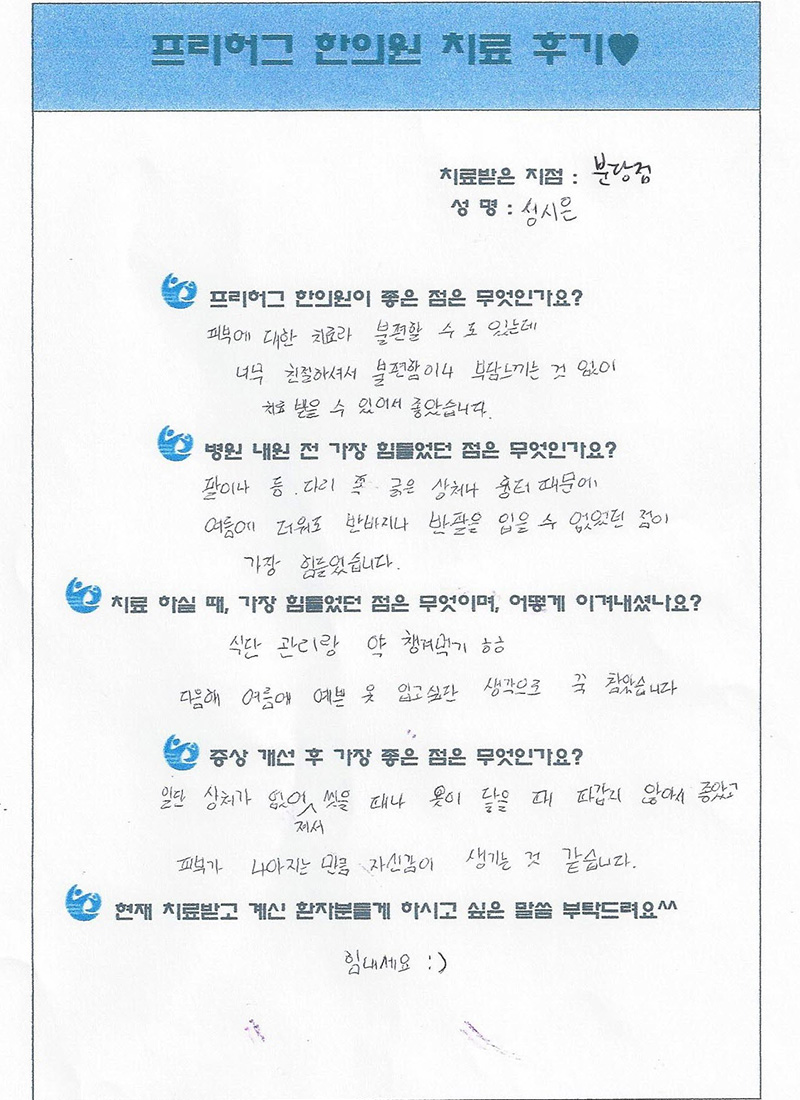 프리허그 한의원 치료 후기♥
치료받은 지점 : 분당점
성 명 : 성시은
프리허그 한의원이 좋은 점은 무엇인가요?
피부에 대한 치료라 불편할 수 도 있는데
너무 친절하셔서 불편함이나 부담느끼는 것 없이
치료 받을 수 있어서 좋았습니다.
병원 내원 전 가장 힘들었던 점은 무엇인가요?
팔이나 등. 다리 쪽 긁은 상처나 흉터 때문에
여름에 더워도 반바지나 반팔을 입을 수 없었던 점이
가장 힘들었습니다.
치료 하실 때, 가장 힘들었던 점은 무엇이며, 어떻게 이겨내셨나요?
식단 관리랑 약 챙겨먹기 ㅎㅎ
다음해 여름에 예쁜 옷 입고싶단 생각으로 꾹 참았습니다
증상 개선 후 가장 좋은 점은 무엇인가요?
일단 상처가 없어 씻을 때나 옷이 닿을 때 따갑지 않아서 좋았고
져서
피부가 나아지는 만큼 자신감이 생기는 것 같습니다.
현재 치료받고 계신 환자분들게 하시고 싶은 말씀 부탁드려요^^
힘내세요 :)